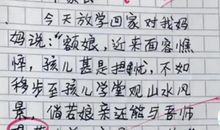 今天放学回家对我妈
妈说:“额娘,近来面容憔
悴,孩儿甚是担忧,不如
移步至孩儿学堂观山水风
景,倘若娘亲还能与吾师